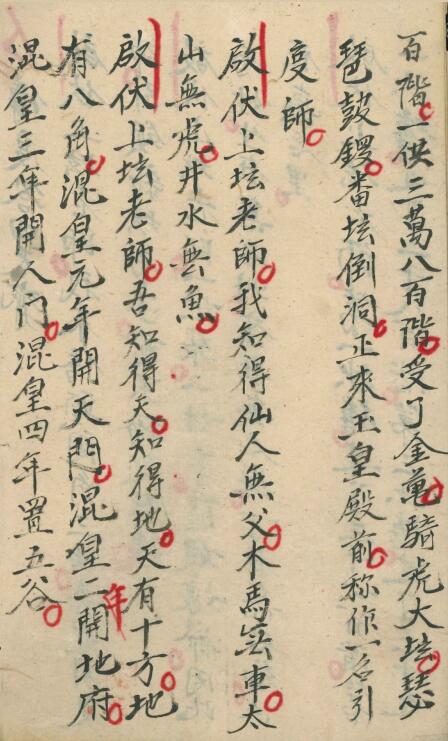 百階一供三萬八百階受了金亀騎虎大坛瑟
琶鼓鑼畨坛倒洞正來玉皇殿前称作一名引
度師
啟伏上坛老師我知得仙人無父木馬無車太
山無虎井水無魚
啟伏上坛老師吾知得天知得地天有十方地
有八角混皇元年開天門混皇二年開地府
混皇三年開人门混皇四年置五谷